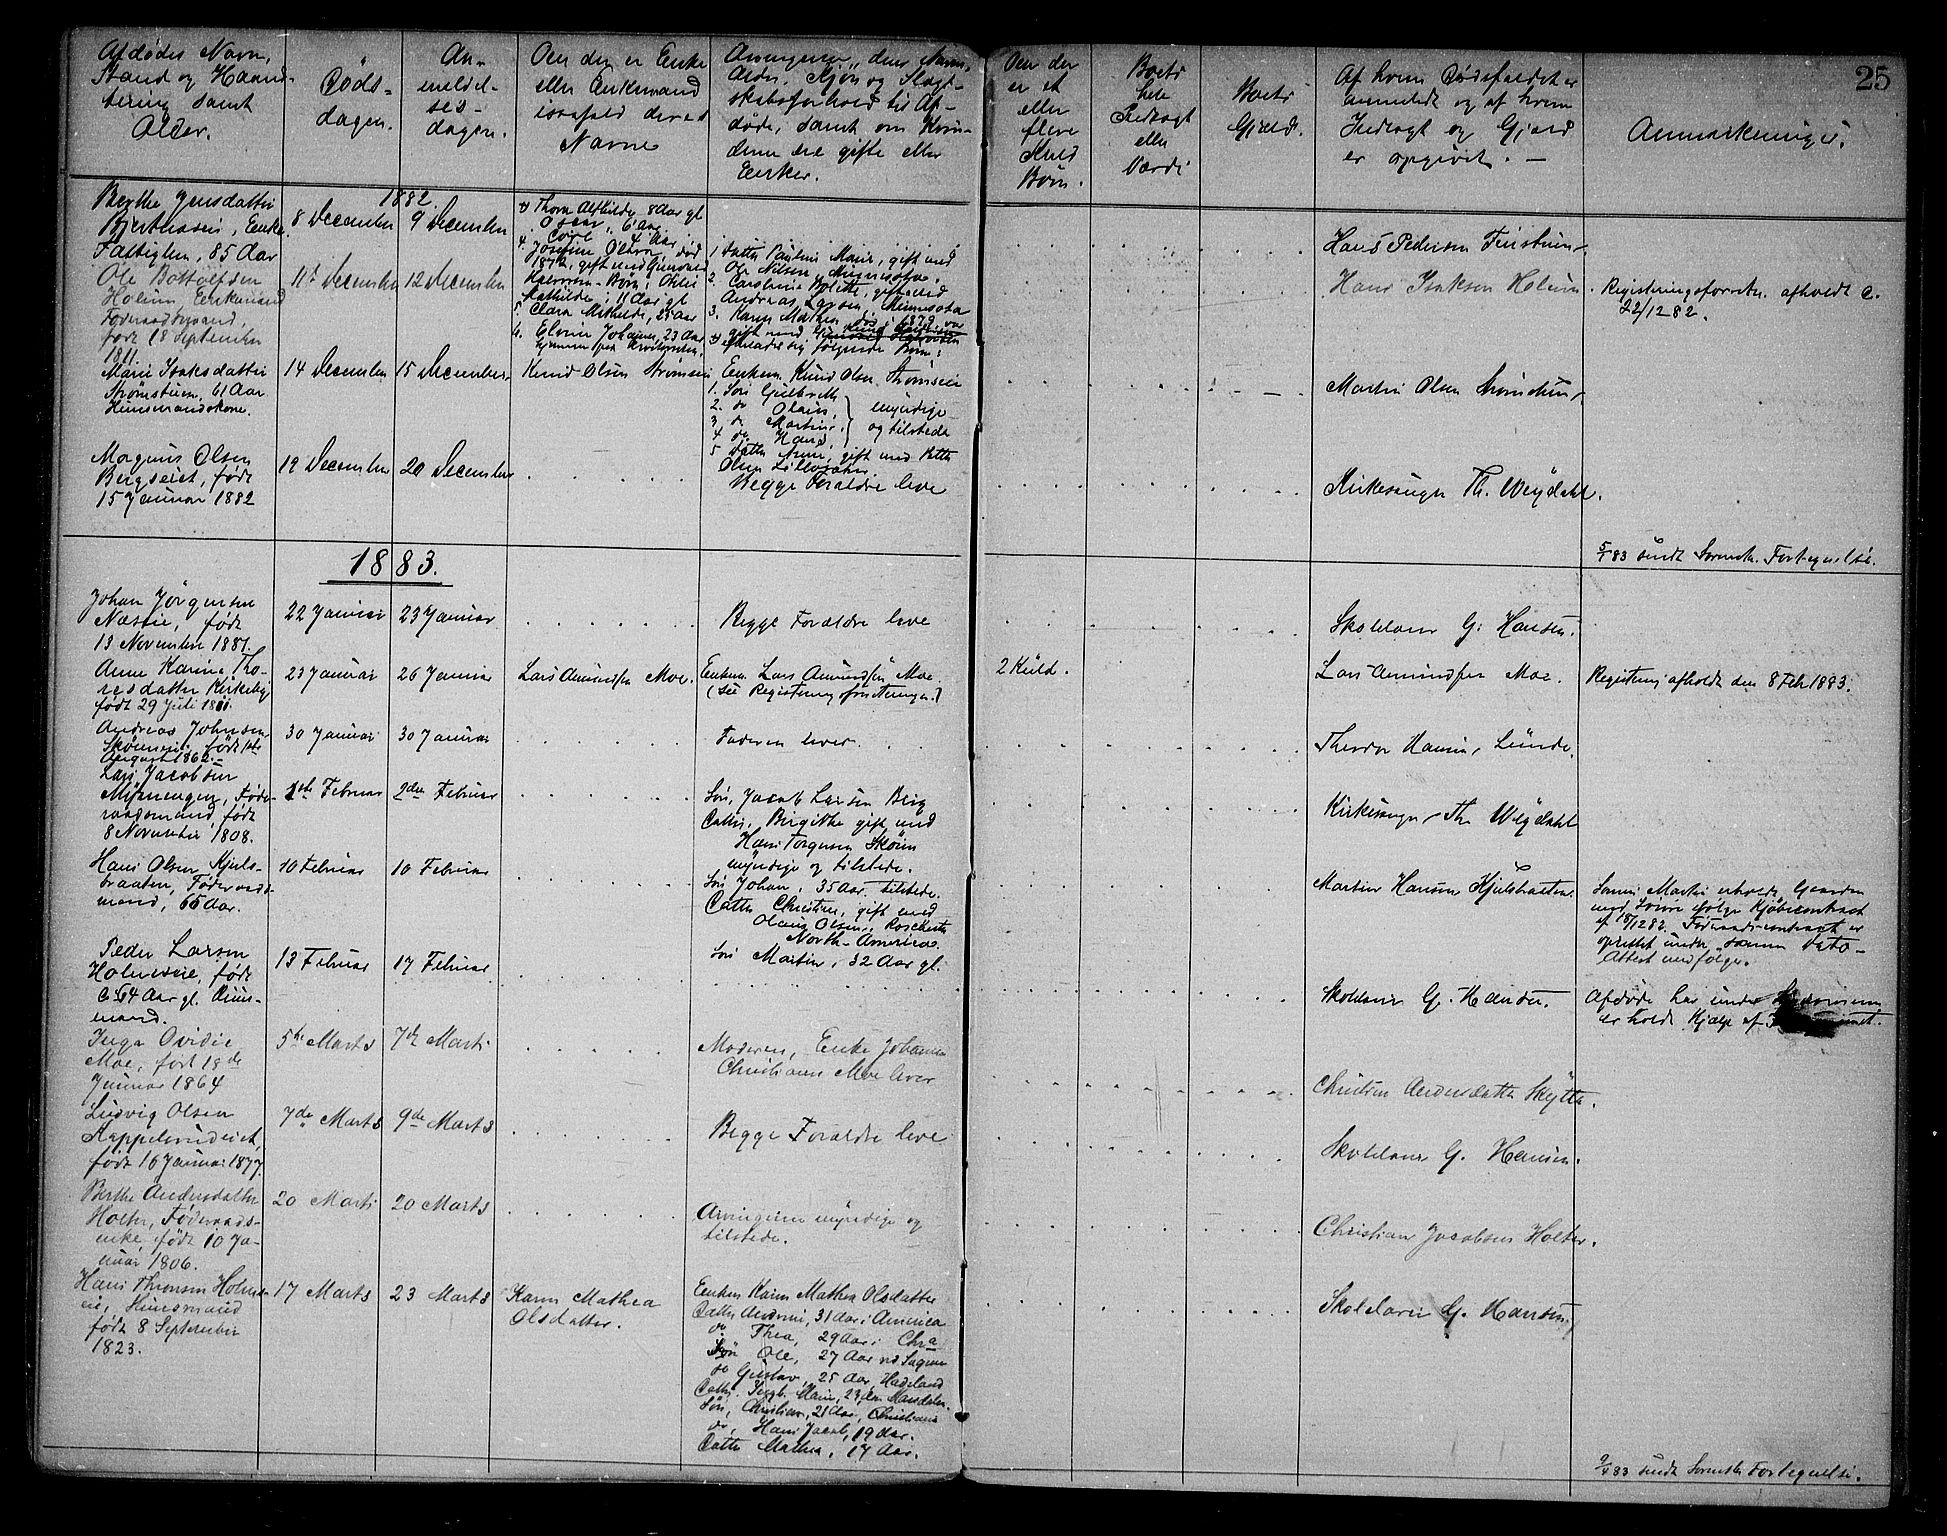 25
Afdødes Navn,
Stand og Haand-
tering samt
Alder.
Døds-
dagen.
An-
meldel-
ses-
dagen.
Om den er Enke
eller Enkemand
isaafald deres
Navne
Arvingernes, deres Navn,
Alder, Kjøn og Slægt-
skabsforhold til Af-
døde, samt om Kvin-
derne ere gifte eller
Enker.
Om der
er et
eller
flere
Kuld
Børn.
Boets
hele
Indtægt
eller
Værdi
Boets
Gjæld.
Af hvem Dødsfaldet er
anmeldt og af hvem
Indtægt og Gjæld
er opgivet. —
Anmærkninger.
1882.
Berthe Jensdatter
Enke
Fattiglem, 85 Aar
8 December
9 December
Hans Pedersen
Ole Bottolfsen
Holum, Enkemand
Føderaadsmand,
født 18 September
1811.
11te December
12 December
Thora Alfhilde, 8 Aar gl.
Oscar, 6 Aar
4 Aar
4. Josefine Olava død
1872, gift med
Børn:
Mathilde, 11 Aar gl.
5. Clara Mathilde, 25 Aar
6. Elvine Johanne, 23 Aar
1 Datter Pauline Marie, gift med
Ole Nilsen, Minnesota.
2. Caroline Bolette, gift med
Andreas Larsen, Minnesota
3. Karen Mathea død 1879, var
gift med
efterlader sig følgende Børn:
Hans Isaksen Holum
Registreringsforretn. afholdt d.
22/12 82.
Marie Isaksdatter
Strømstuen, 61 Aar
Husmandskone.
14 December
15 December
Knud Olsen Strømseie
Enkem. Knud Olsen Strømseie
1. Søn Gulbrith
2. do Olaus,
3. do Martin,
4 do Hans,
myndige
og tilstede
5 Datter Anne, gift med Petter
Olsen
Martin Olsen Strømstuen
Magnus Olsen
Bergseiet, født
15 Januar 1882
19 December
20 December
Begge Forældre leve
Kirkesanger Th. Weydahl.
5/1 83 sendt Sorenskr. Fortegnelse.
1883.
Johan Jørgensen
Næseie, født
13 November 1881.
22 Januar
23 Januar
Begge Forældre leve
Skolelærer G. Hansen.
Anne Karine Tho-
resdatter Kirkeby
født 29 Juli
23 Januar
26 Januar
Lars Amundsen Moe.
Enkem. Lars Amundsen Moe.
(see Registreringsforretningen.)
2 Kuld.
Lars Amundsen Moe.
Registrering afholdt den 8 Feb 1883.
Andreas Johnsen
født 1ste
August 1862.
30 Januar
30 Januar
Faderen lever.
Theodor Hansen, Lunde.
Lars Jacobsen
Myrnengen, Føde-
raadsmand, født
8 November 1808.
1ste Februar
2den Februar
Søn, Jacob Larsen Berg
Datter, Birgithe gift med
Hans Torgersen Skøien
myndige og tilstede.
Kirkesanger Th. Weydahl
Hans Olsen Kjels-
braaten, Føderaads-
mand, 66 Aar.
10 Februar
10 Februar
Søn Johan, 35 Aar tilstede.
Datter Christine, gift med
Olaus Olsen, Rochester
North-America.
Søn Martin, 32 Aar gl.
Martin Hansen Kjelsbraaten.
Sønnen Martin erholdt Gaarden
med Løsøre ifølge Kjøbecontract
af 18/12 82. Føderaadscontract er
oprettet under samme Dato —
Attest medfølger.
Peder Larsen
Holmseie, født
c. 64 Aar gl. Huus-
mand.
13 Februar
17 Februar
Skolelærer G. Hansen.
Afdøde har under Sygdommen
erholdt Hjælp af
Inga Ovidie
Moe, født 18de
Januar 1864
5te Marts
7de Marts
Moderen, Enke Johanne
Christiane Moe lever
Christine Andersdatter Skytte.
Ludvig Olsen
Kappelsrudeiet,
født 16 Januar 1877
7de Marts
9de Marts
Begge Forældre leve
Skolelærer G. Hansen.
Berthe Andersdatter
Holter, Føderaads-
enke, født 10 Ja-
nuar 1806.
20 Marts
20 Marts
Arvingerne myndige og
tilstede.
Christian Jacobsen Holter.
Hans Thronsen Holms-
eie, Husmand
født 8 September
1823.
17 Marts
23 Marts
Karen Mathea
Olsdatter.
Enken Karen Mathea Olsdatter
Datter Andrine, 31 Aar i America
do Thea, 29 Aar i Chra
Søn Ole, 27 Aar
do Gustav, 25 Aar, Hadeland
Datter Marie, 23 Aar
Søn, Christian, 21 Aar, Christiania
do, Hans Jacob, 19 Aar.
Datter Mathea, 17 Aar.
Skolelærer G. Hansen.
9/4 83 sendt Sorenskr. Fortegnelse.